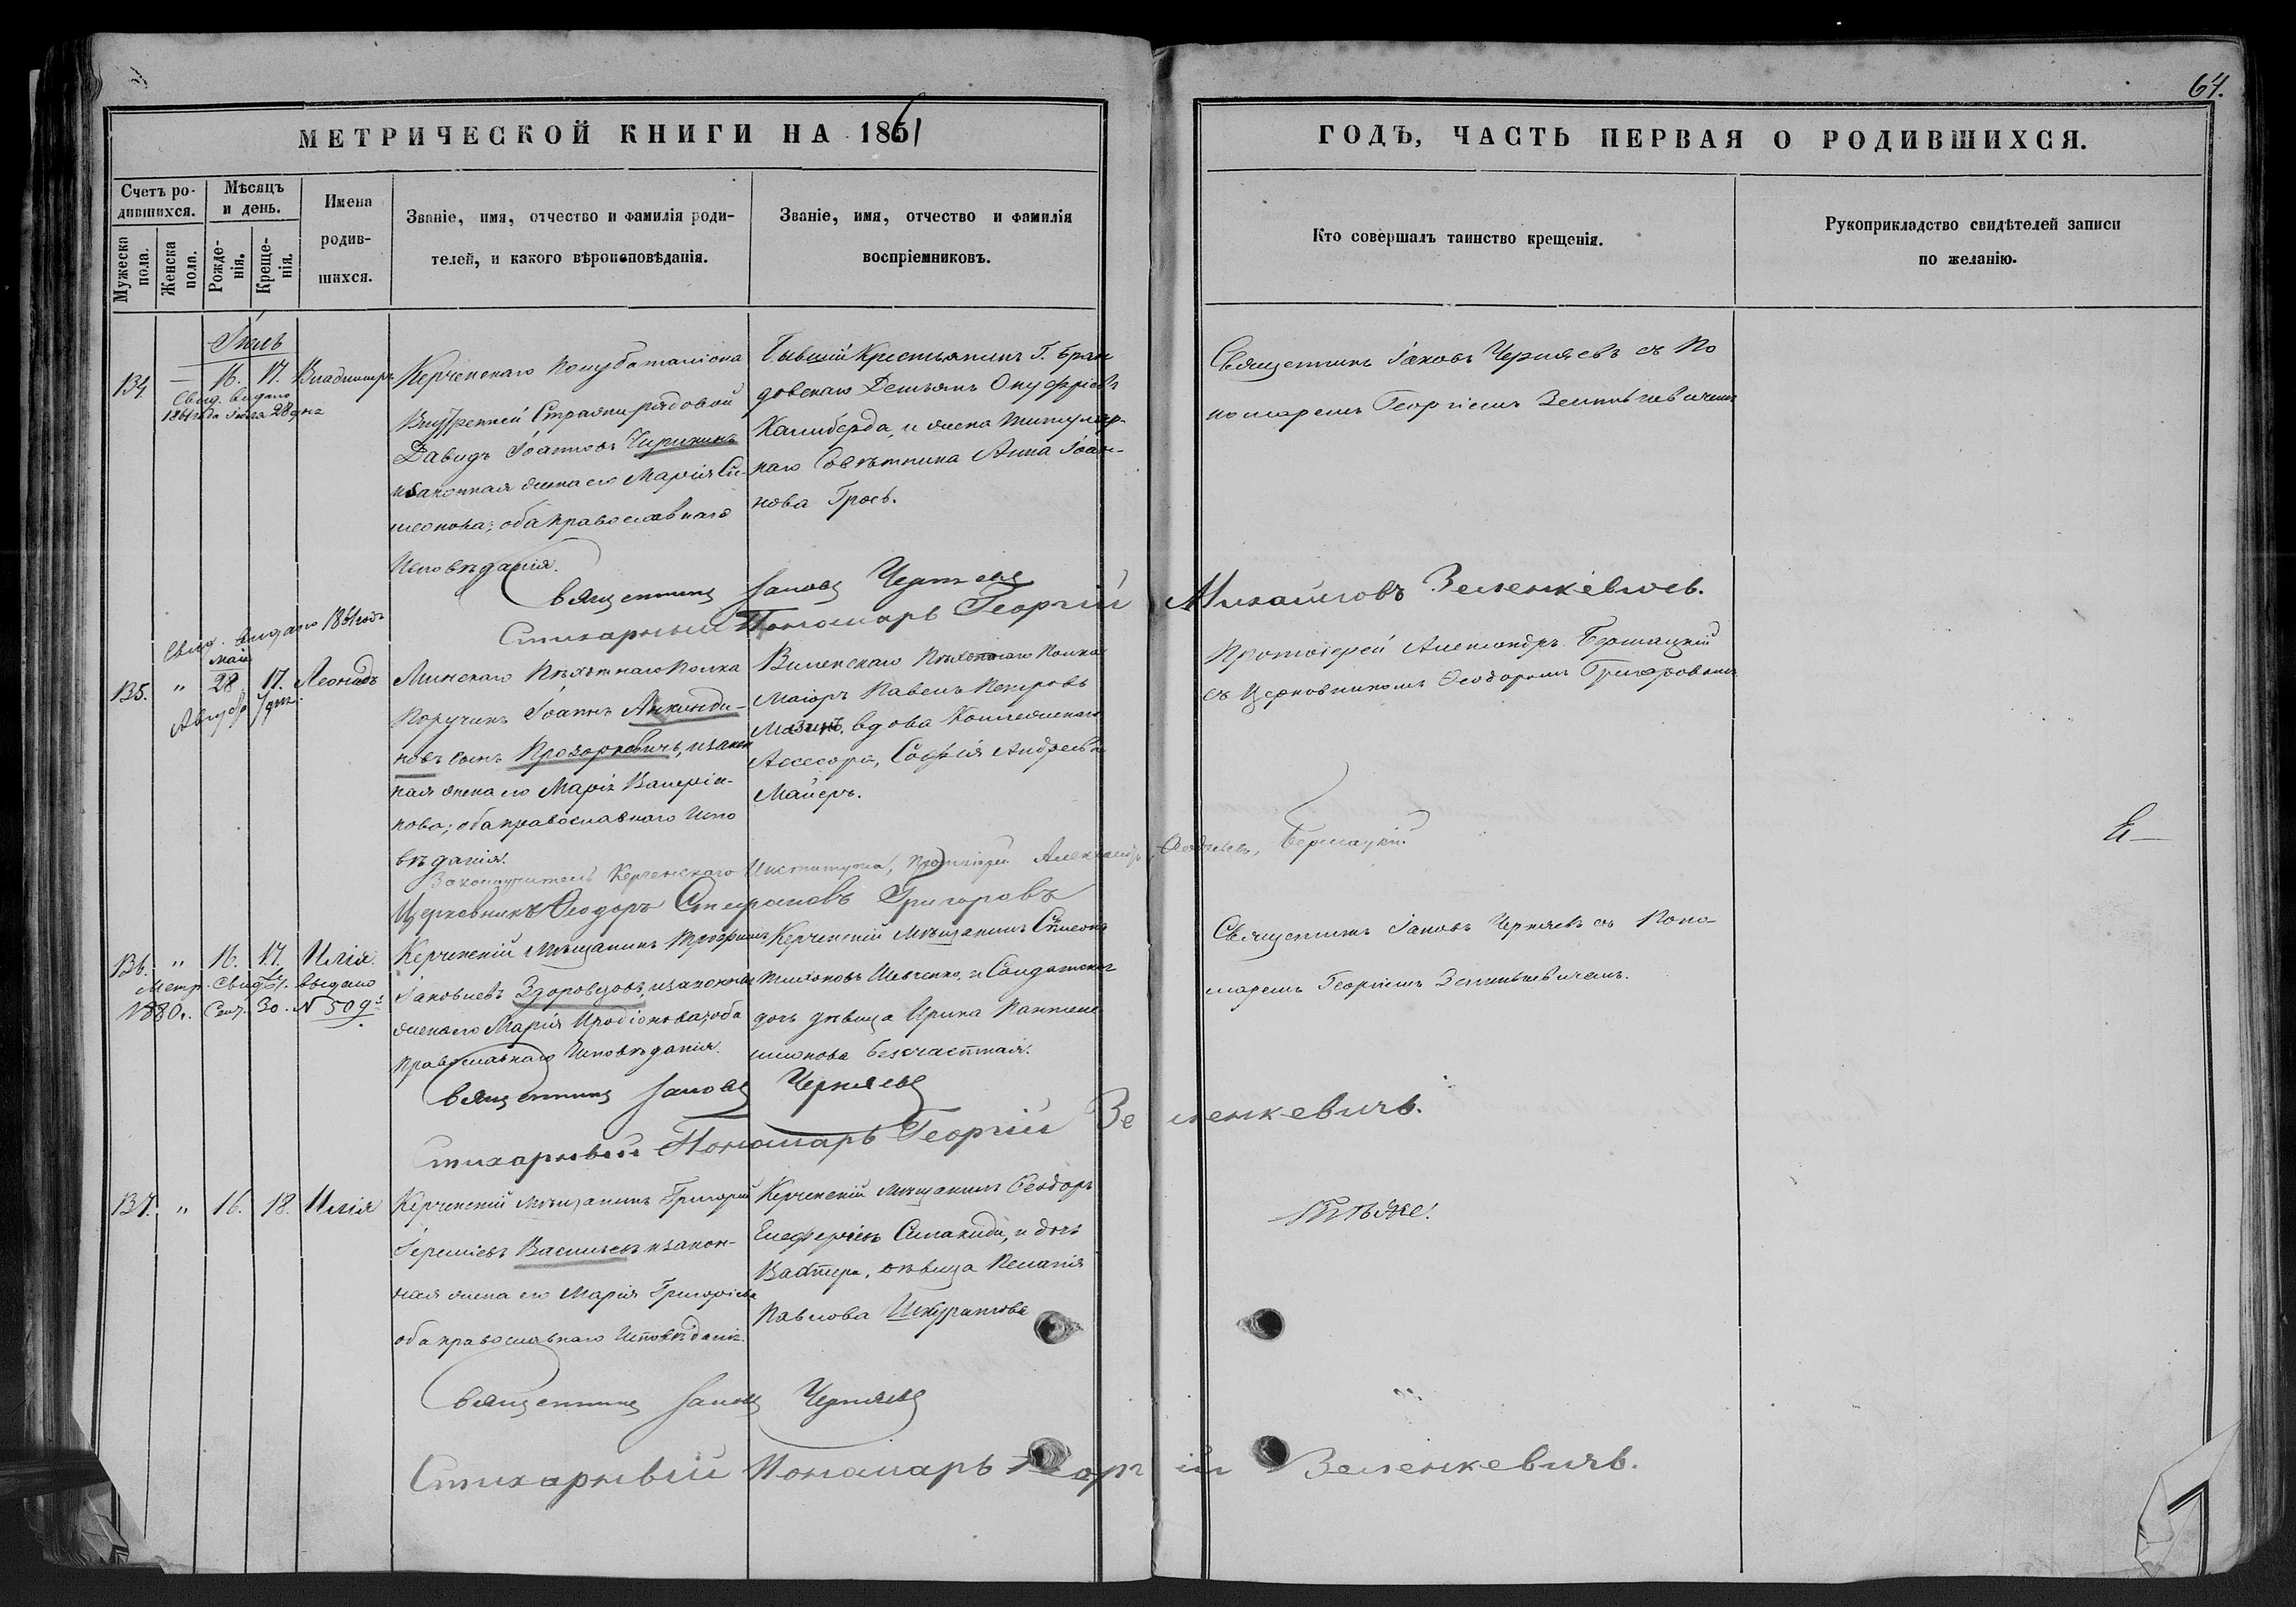 64.
МЕТРИЧЕСКОЙ КНИГИ НА 1861
ГОДЪ, ЧАСТЬ ПЕРВАЯ О РОДИВШИХСЯ.
Счетъ ро-
дившихся.
Мужеска
пола.
Женска
пола.
Мѣсяцъ
и день.
Рожде-
нія.
Креще-
нія.
Имена
родив-
шихся.
Званіе, имя, отчество и фамилія роди-
телей, и какого вѣроисповѣданія.
Званіе, имя, отчество и фамилія
воспріемниковъ.
Кто совершалъ таинство крещенія.
Рукоприкладство свидѣтелей записи
по желанію.
134. — 16. 17. Владимиръ
Свид. выдано
1861 года Іюля 28 дня
Керченскаго Полубаталіона
Внутренней Стражи рядовой
Давидъ Іоанновъ Чирикинъ
и законная жена его Марія Си-
меонова; оба православнаго
Исповѣданія.
Бывшій Крестьянинъ Г. Бран
довскаго Демьянъ Онуфріевъ
Калиберда, и жена титуляр-
наго Совѣтника Анна Іоан-
нова Гросъ.
Священникъ Іаковъ Черняевъ съ По
номаремъ Георгіемъ Зеленкевичемъ
Священникъ Іаковъ Черняевъ
Стихарный Пономарь Георгій Михайловъ Зеленкевичъ.
Свид. выдано 1861 годъ
маія
135. " 28 17. Леонидъ
Август 7 дня.
Минскаго Пѣхотнаго Полка
Поручикъ Іоаннъ Акинди-
новъ сынъ Прозоркевичъ, и закон
ная жена его Марія Валеріа-
нова; оба православнаго Испо
вѣданія.
Виленскаго Пѣхотнаго Полка
Маіоръ Павелъ Петровъ
вдова Коллежскаго
Ассесора, Софія Андреева
Майеръ.
Протоіерей Александръ Бершацкій
съ Церковникомъ Ѳеодоромъ Григоровымъ
Законоучитель Керченскаго Института, Протоіерей Александръ Бершацкій
Церковникъ Ѳеодоръ Стефановъ Григоровъ
136. " 16. 17. Илія.
Метр. Свид. выдано
1880. Сент. 30. № 509
Керченскій Мѣщанинъ Трофимъ
Іаковлевъ Здоровцовъ, и законная
жена его Марія Иродіонова; оба
Православнаго Исповѣданія.
Керченскій Мѣщанинъ Симеонъ
Тихоновъ Шевченко, и Солдатская
дочь дѣвица Ирина Пантеле
имонова Безсчастная.
Священникъ Іаковъ Черняевъ съ Поно-
маремъ Георгіемъ Зеленкевичемъ.
Священникъ Іаковъ Черняевъ
Стихарный Пономарь Георгій Зеленкевичъ.
137. " 16. 18. Илія
Керченскій мѣщанинъ Григорій
Іереміевъ Васильевъ и закон-
ная жена его Марія Григоріева
оба православнаго Исповѣданія.
Керченскій мѣщанинъ Ѳеодоръ
Елеферіевъ Симакиди, и дочь
дѣвица Меланія
Павлова Шкуратова
Тѣ же.
Священникъ Іаковъ Черняевъ
Стихарный Пономарь Георгій Зеленкевичъ.